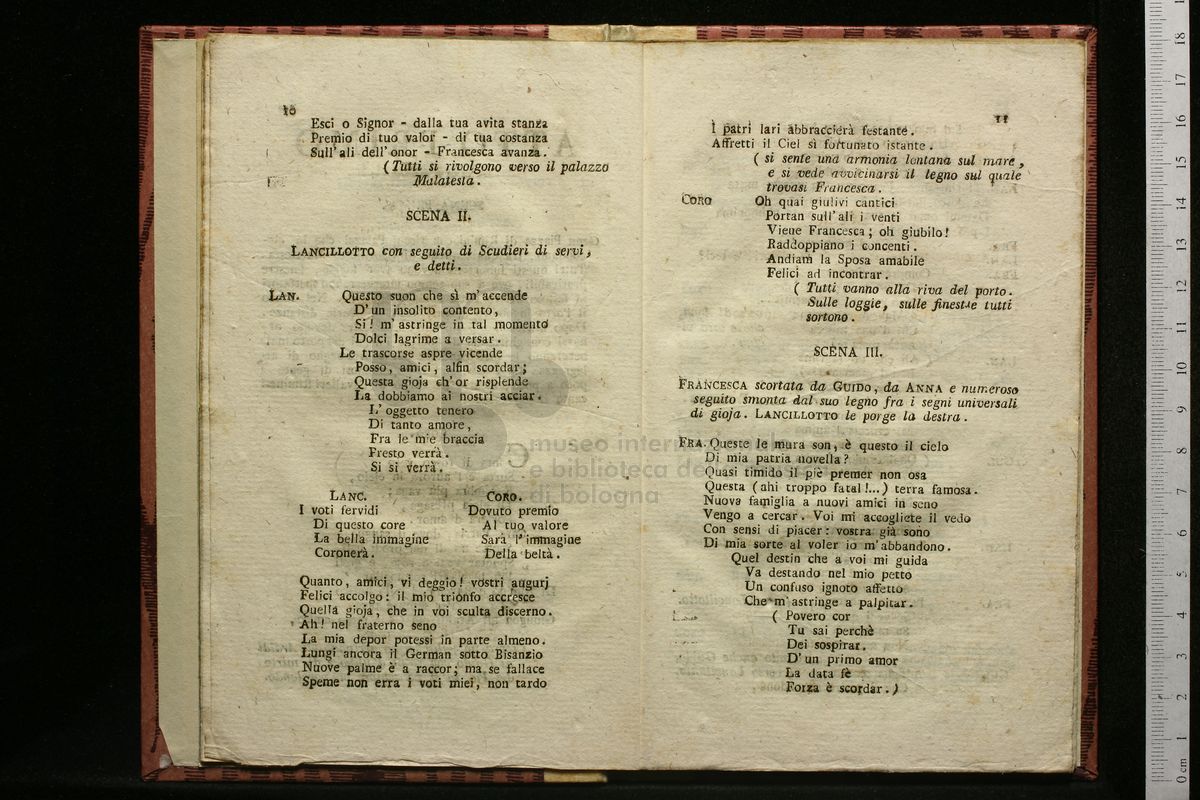 10
Esci o Signor - dalla tua avita stanza
Premio di tuo valor - di tua costanza
Sull' ali dell' onor - Francesca avanza.
(Tutti si rivolgono verso il palazzo
Malatesta.
SCENA II.
LANCILLOTTO con seguito di Scudieri di servi,
e detti.
LAN. Questo suon che sì m' accende
D' un insolito contento,
Si! m' astringe in tal momento
Dolci lagrime a versar.
Le trascorse aspre vicende
Posso, amici, alfin scordar;
Questa gioja ch' or risplende
La dobbiamo ai nostri acciar.
L' oggetto tenero
Di tanto amore,
Fra le mie braccia
Fresto verrà.
Si si verrà.
LANC.
I voti fervidi
Di questo core
La bella immagine
Coronerà.
CORO.
Dovuto premio
Al tuo valore
Sarà l' immagine
Della beltà.
Quanto, amici, vi deggio! vostri augurj
Felici accolgo: il mio trionfo accresce
Quella gioja, che in voi sculta discerno.
Ah! nel fraterno seno
La mia depor potessi in parte almeno.
Lungi ancora il German sotto Bisanzio
Nuove palme è a raccor; ma se fallace
Speme non erra i voti miei, non tardo
11
I patri lari abbraccierà festante.
Affretti il Ciel sì fortunato istante.
( si sente una armonia lontana sul mare,
e si vede avvicinarsi il legno sul quale
trovasi Francesca.
CORO Oh quai giulivi cantici
Portan sull' ali i venti
Viene Francesca; oh giubilo!
Raddoppiano i concenti.
Andiam la Sposa amabile
Felici ad incontrar.
( Tutti vanno alla riva del porto.
Sulle loggie, sulle finestre tutti
sortono.
SCENA III.
FRANCESCA scortata da GUIDO, da ANNA e numeroso
seguito smonta dal suo legno fra i segni universali
di gioja. LANCILLOTTO le porge la destra.
FRA. Queste le mura son, è questo il cielo
Di mia patria novella?
Quasi timido il piè premer non osa
Questa (ahi troppo fatal!...) terra famosa.
Nuova famiglia a nuovi amici in seno
Vengo a cercar. Voi mi accogliete il vedo
Con sensi di piacer: vostra già sono
Di mia sorte al voler io m' abbandono.
Quel destin che a voi mi guida
Va destando nel mio petto
Un confuso ignoto affetto
Che m' astringe a palpitar.
( Povero cor
Tu sai perchè
Dei sospirar.
D' un primo amor
La data fè
Forza è scordar.)
museo inter
e biblioteca de
di bologna